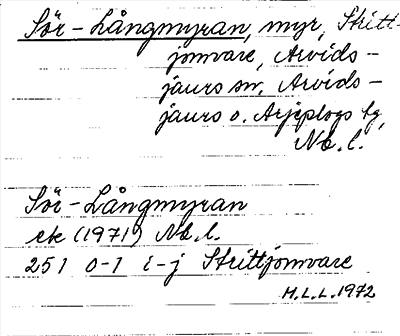 Sör-Långmyran, myr, Stritt-
jomvare, Arvids-
jaurs sn, Arvids-
jaurs o. Arjeplogs tg,
Nb. l.
Sör-Långmyran
ek (1971) Nb. l.
251 0-1 i-j Strittjomvare
M.L.L. 1972